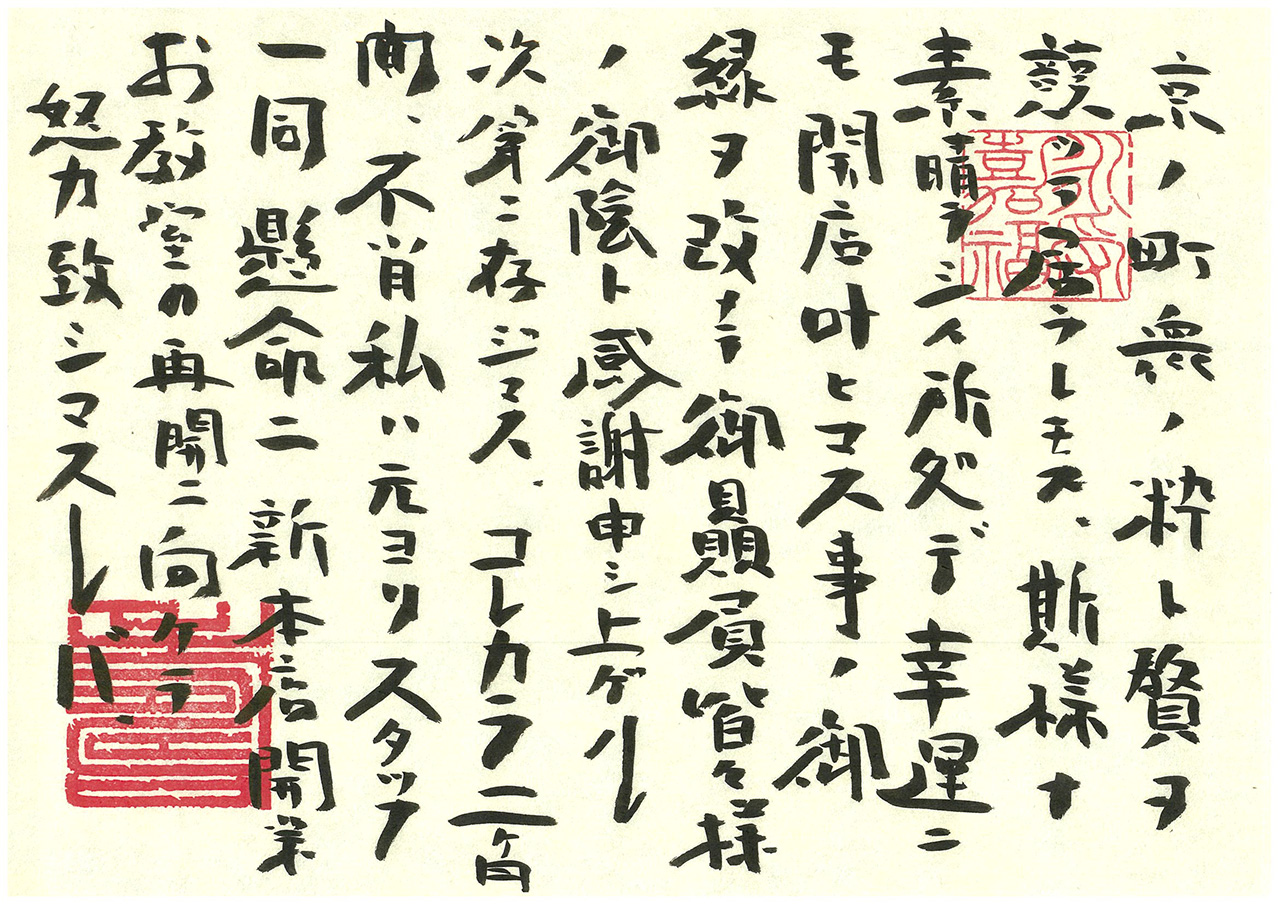 京ノ町衆ノ粋ト贅ヲ
護ッテ居ラレマス、斯様ナ
素晴ラシイ所ダデ幸運ニ
モ開店叶ヒマス事ノ御
縁ヲ改メテ御贔屓皆々様
ノ御陰ト感謝申シ上ゲル
次第ニ存ジマス。コレカラ二ヶ月
間、不肖私ハ元ヨリスタッフ
一同懸命ニ新本店開業
お教室の再開ニ向ケテ
努力致シマスレバ、